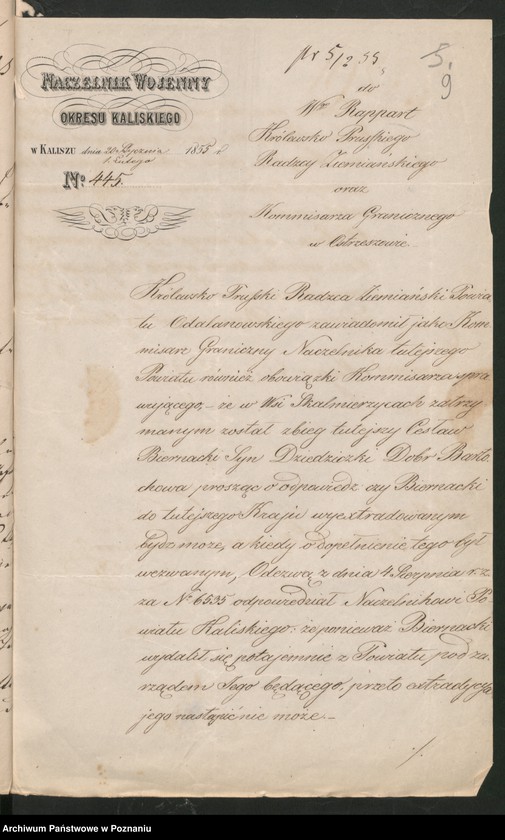 pr 5/2 55
5.
9
NACZELNIK WOJENNY
OKRĘSU KALISKIEGO
W KALISZU dnia 20 Stycznia 1855 r
1 Lutego
No 445.
do
Wgo Rappart
Królewsko Prusskiego
Radzcy Ziemiańskiego
oraz
Kommisarza Granicznego
w Ostrzeszowie.
Królewsko Prusski Radzca Ziemiański Powia
tu Odalanowskiego zawiadomił jako Kom
misarz Graniczny Naczelnika tutejszego
Powiatu również obowiązki Kommisarza spra
wującego, – że w Wsi Skalmierzycach zatrzy
manym został zbieg tutejszy Cesław
Biernacki Syn Dziedziczki Dobr Barto
chowa prosząc o odpowiedz czy Biernacki
do tutejszego Kraju wyextradowanym
bydz może, a kiedy o dopełnienie tego był
wezwanym, Odezwą z dnia 4 Sierpnia r. z.
za No 6535 odpowiedział Naczelnikowi Po-
wiatu Kaliskiego: że ponieważ Biernacki
wydalił się potajemnie z Powiatu pod za
rządem Jego będącego, przeto extradycya
jego nastąpić nie może. –
./.
Archiwum Państwowe w Poznaniu